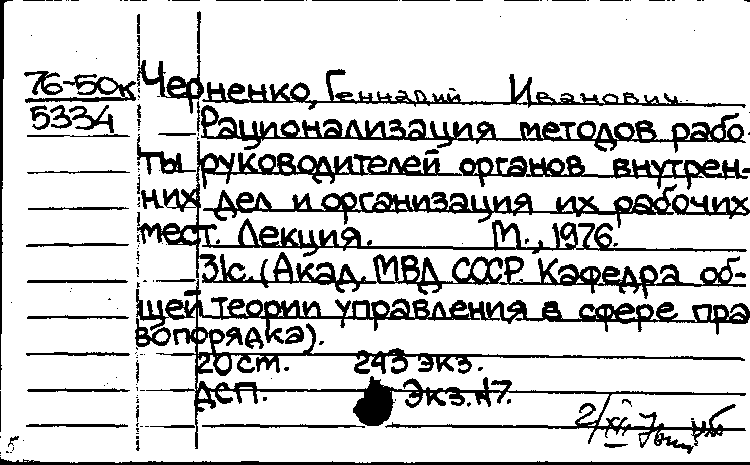 76-50к Черненко, Геннадий Иванович
5334 Рационализация методов рабо-
ты руководителей органов внутрен-
них дел и организация их рабочих
мест. Лекция. М., 1976.
31с. (Акад. МВД СССР. Кафедра об-
щей теории управления в сфере пра
вопорядка).
20 ст. 243 экз.
ДСП. Экз. №7.
2/XII
5